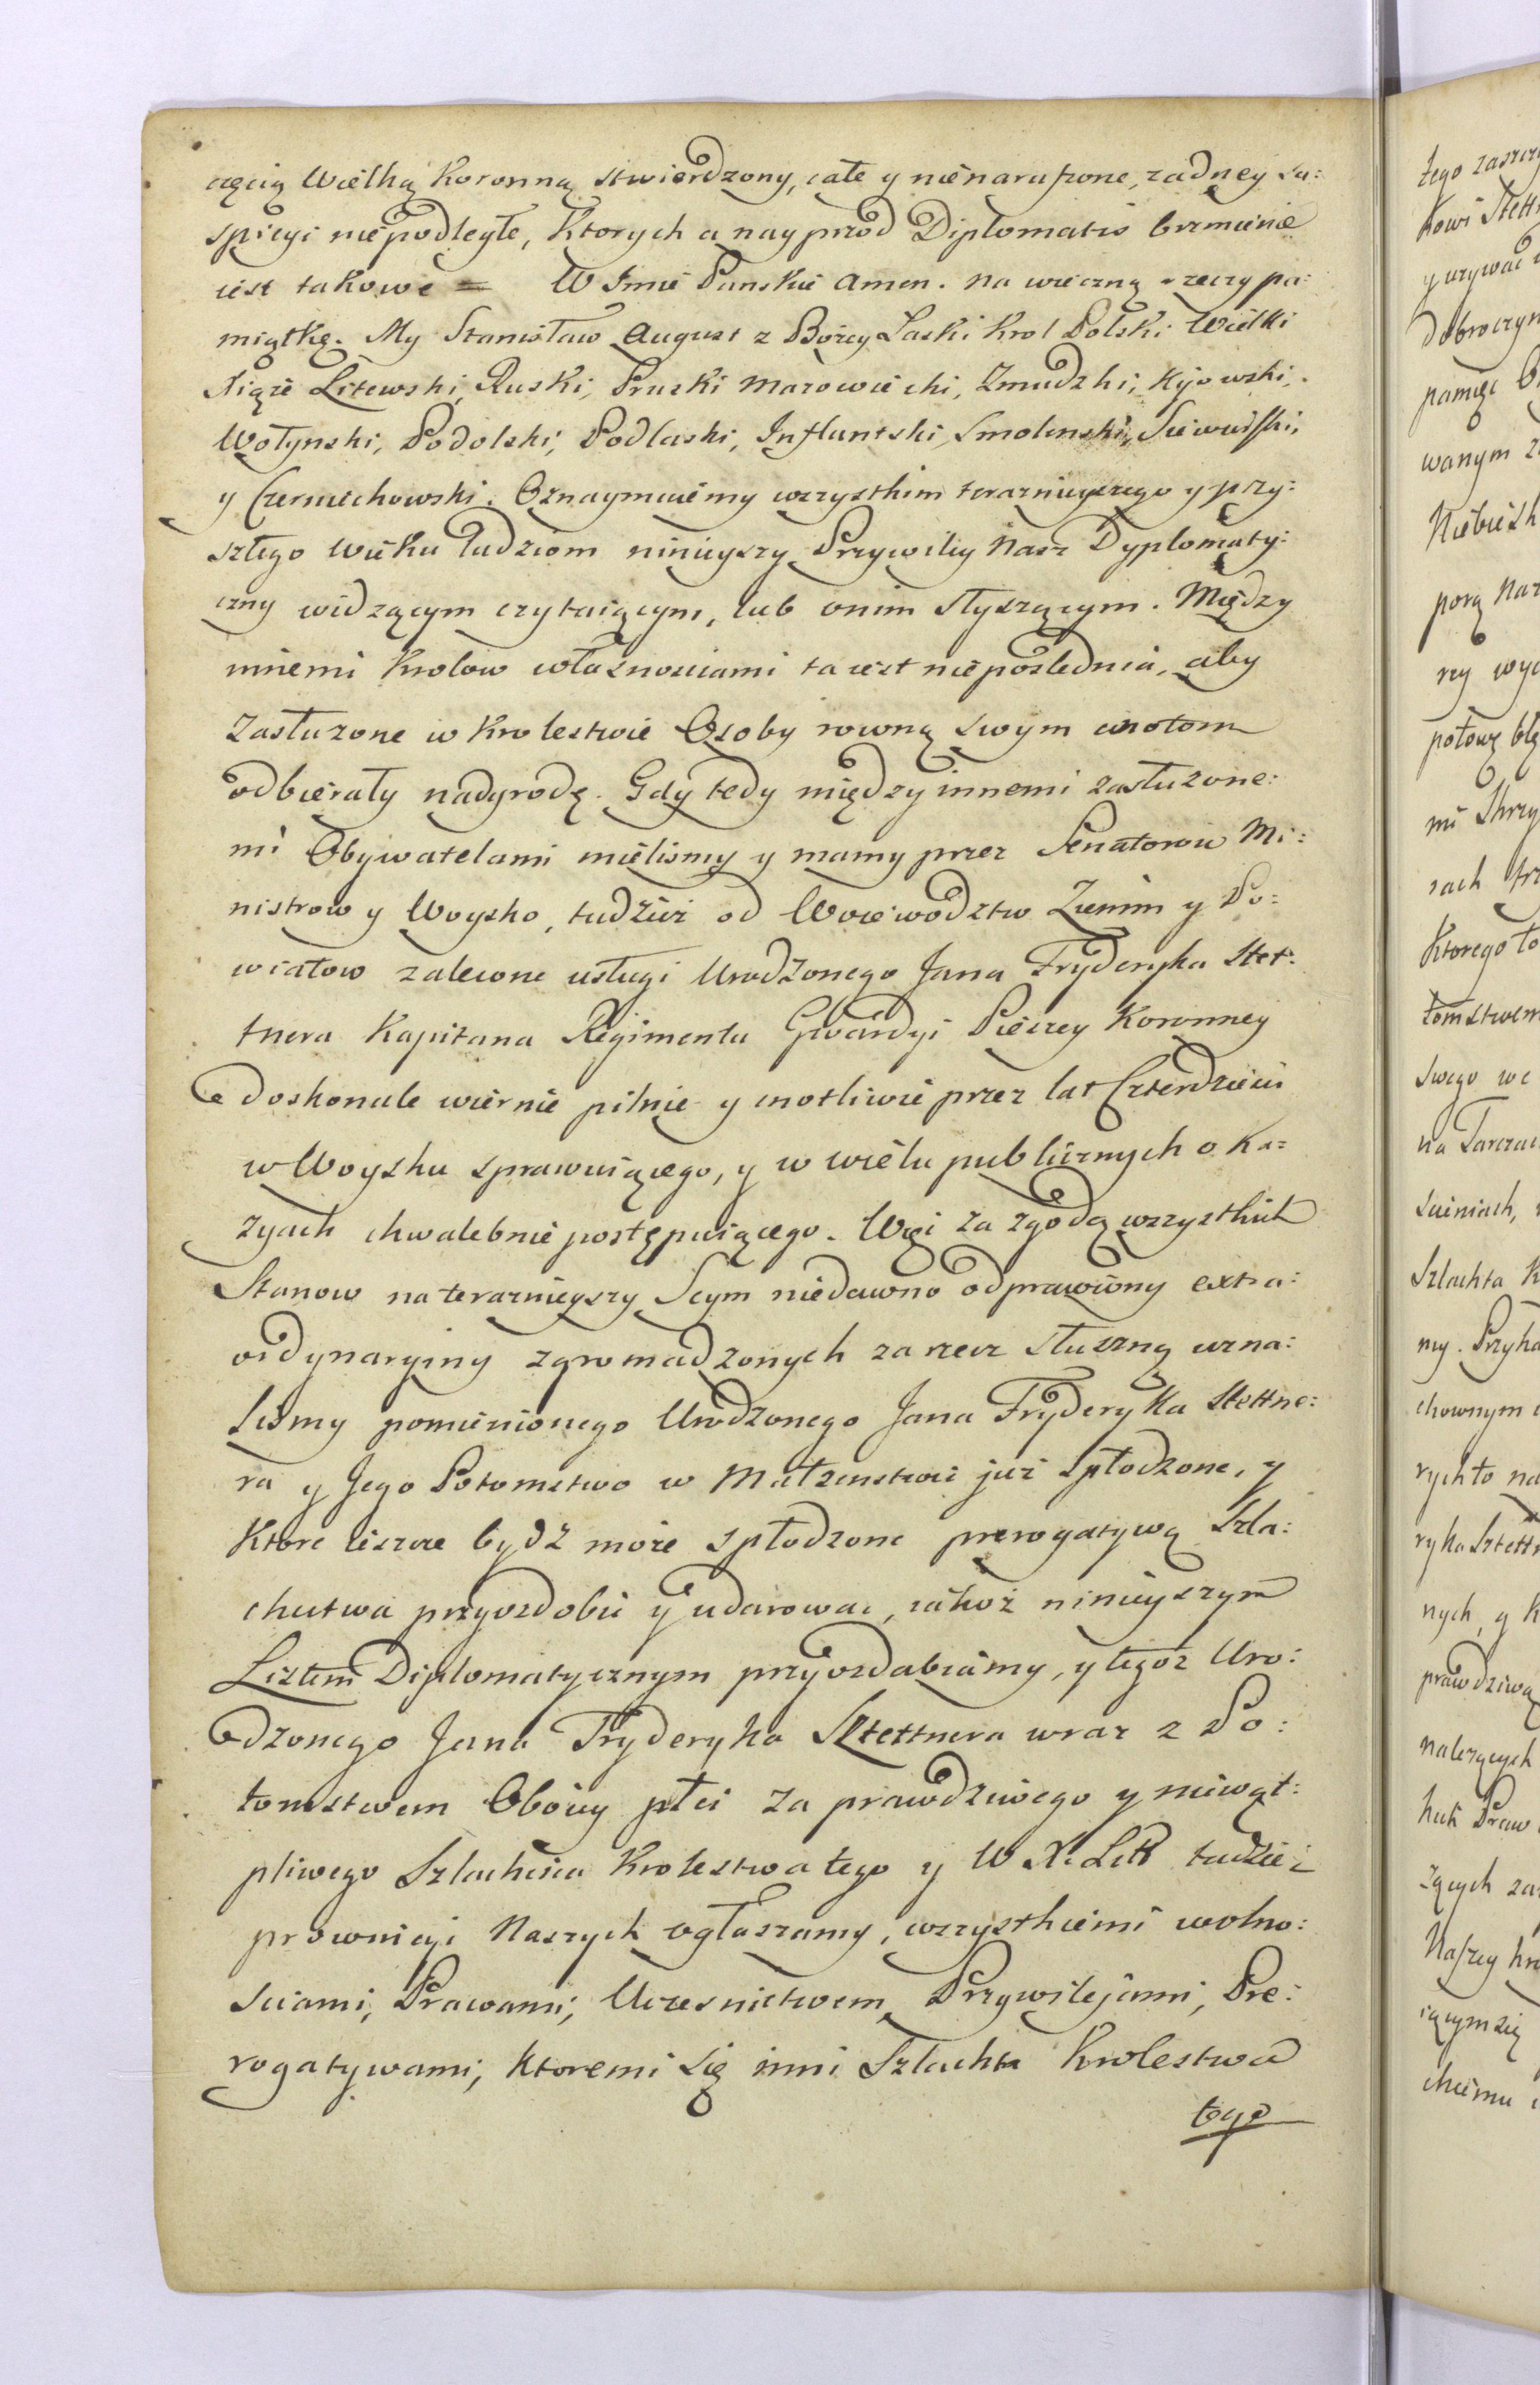 częcią Wielką Koronną stwierdzony, całe y nienaruszone, zadney su:
spicyi niepodległe, Ktorych a nayprzod Diplomatis brzmienie
iest takowe = W Imie Panskie Amen. na wieczną rzeczy pa:
miątkę. My Stanisław August z Bożey Łaski Krol Polski Wielki
Xiąże Litewski, Ruski, Pruski Mazowiecki, Zmudzki, Kijowski,
Wołynski, Podolski, Podlaski, Inflantski, Smolenski, Siewierski,
y Czerniechowski. Oznaymuiemy wszystkim teraznieyszego y przy:
szłego wieku ludziom ninieyszy Przywiley Nasz Dyplomaty:
czny widzącym czytaiącym, lub onim słyszącym. Między
innemi Krolow własnosciami ta iest nieposlednia, aby
Zasłuzone w Krolestwie Osoby rowną swym cnotom
odbierały nadgrodę. Gdy tedy między innemi zasłuzone:
mi Obywatelami mielismy y mamy przez Senatorow Mi:
nistrow y Woysko, tudzież od Woiewodztw Ziemin y Po:
wiatow zalecone usługi Urodzonego Jana Fryderyka Stet:
tnera Kapitana Regimentu Gwardyi Pieszey Koronney
doskonale wiernie pilnie y cnotliwie przez lat Czterdziesci
w Woysku sprawuiącego, y w wielu publicznych oka=
zyach chwalebnie postępuiącego. Więc za zgodą wszystkich
Stanow na teraznieyszy Seym niedawno odprawiony extra:
ordynaryiny zgromadzonych za rzecz słuszną uzna:
lismy pomienionego Urodzonego Jana Fryderyka Stettne:
ra y Jego Potomstwo w Małzenstwie już Spłodzone, y
Ktore ieszcze bydż może spłodzone prerogatywą Szla:
chectwa przyozdobić y udarować, iakoż ninieyszym
Listem Diplomatycznym przyozdabiamy, y tegoż Uro:
dzonego Jana Fryderyka Sztettnera wraz z Po:
tomstwem Oboiey płci za prawdziwego y niewąt:
pliwego Szlachcica Krolestwa tego y W. X. Litt tudzież
prowincyi Naszych ogłaszamy, wszystkiemi wolno:
sciami, Prawami, Uczesnictwem, Przywilejami, Pre:
rogatywami, Ktoremi się inni Szlachta Krolestwa
tego